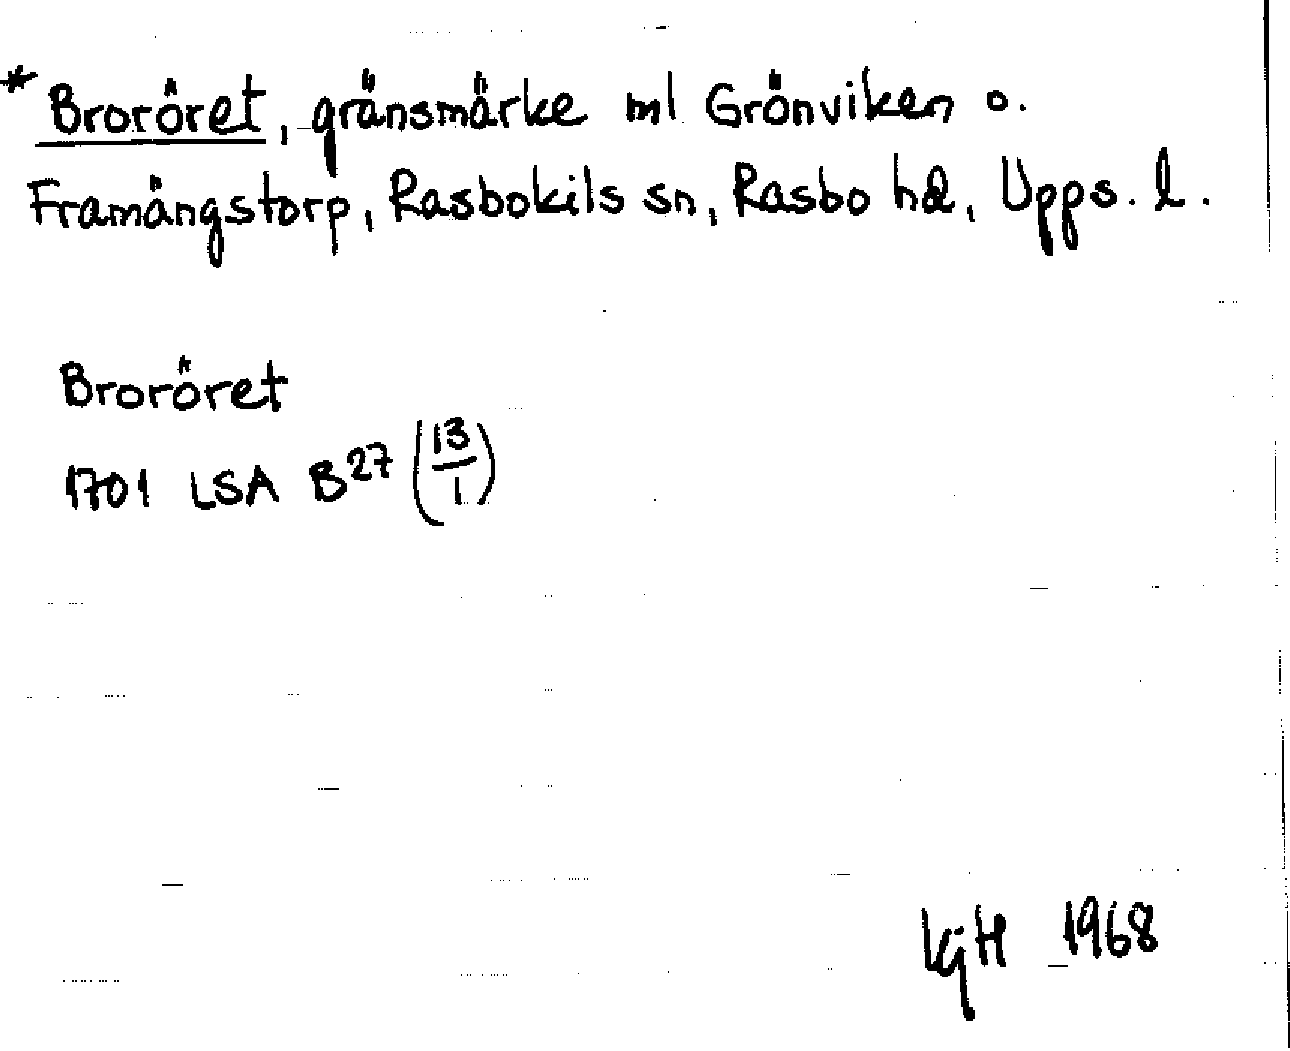 * Broröret, gränsmärke ml Grönviken o.
Framängstorp, Rasbokils sn, Rasbo hd, Upps. l.
Broröret
1701 LSA B²⁷ (13/1)
KjH 1968